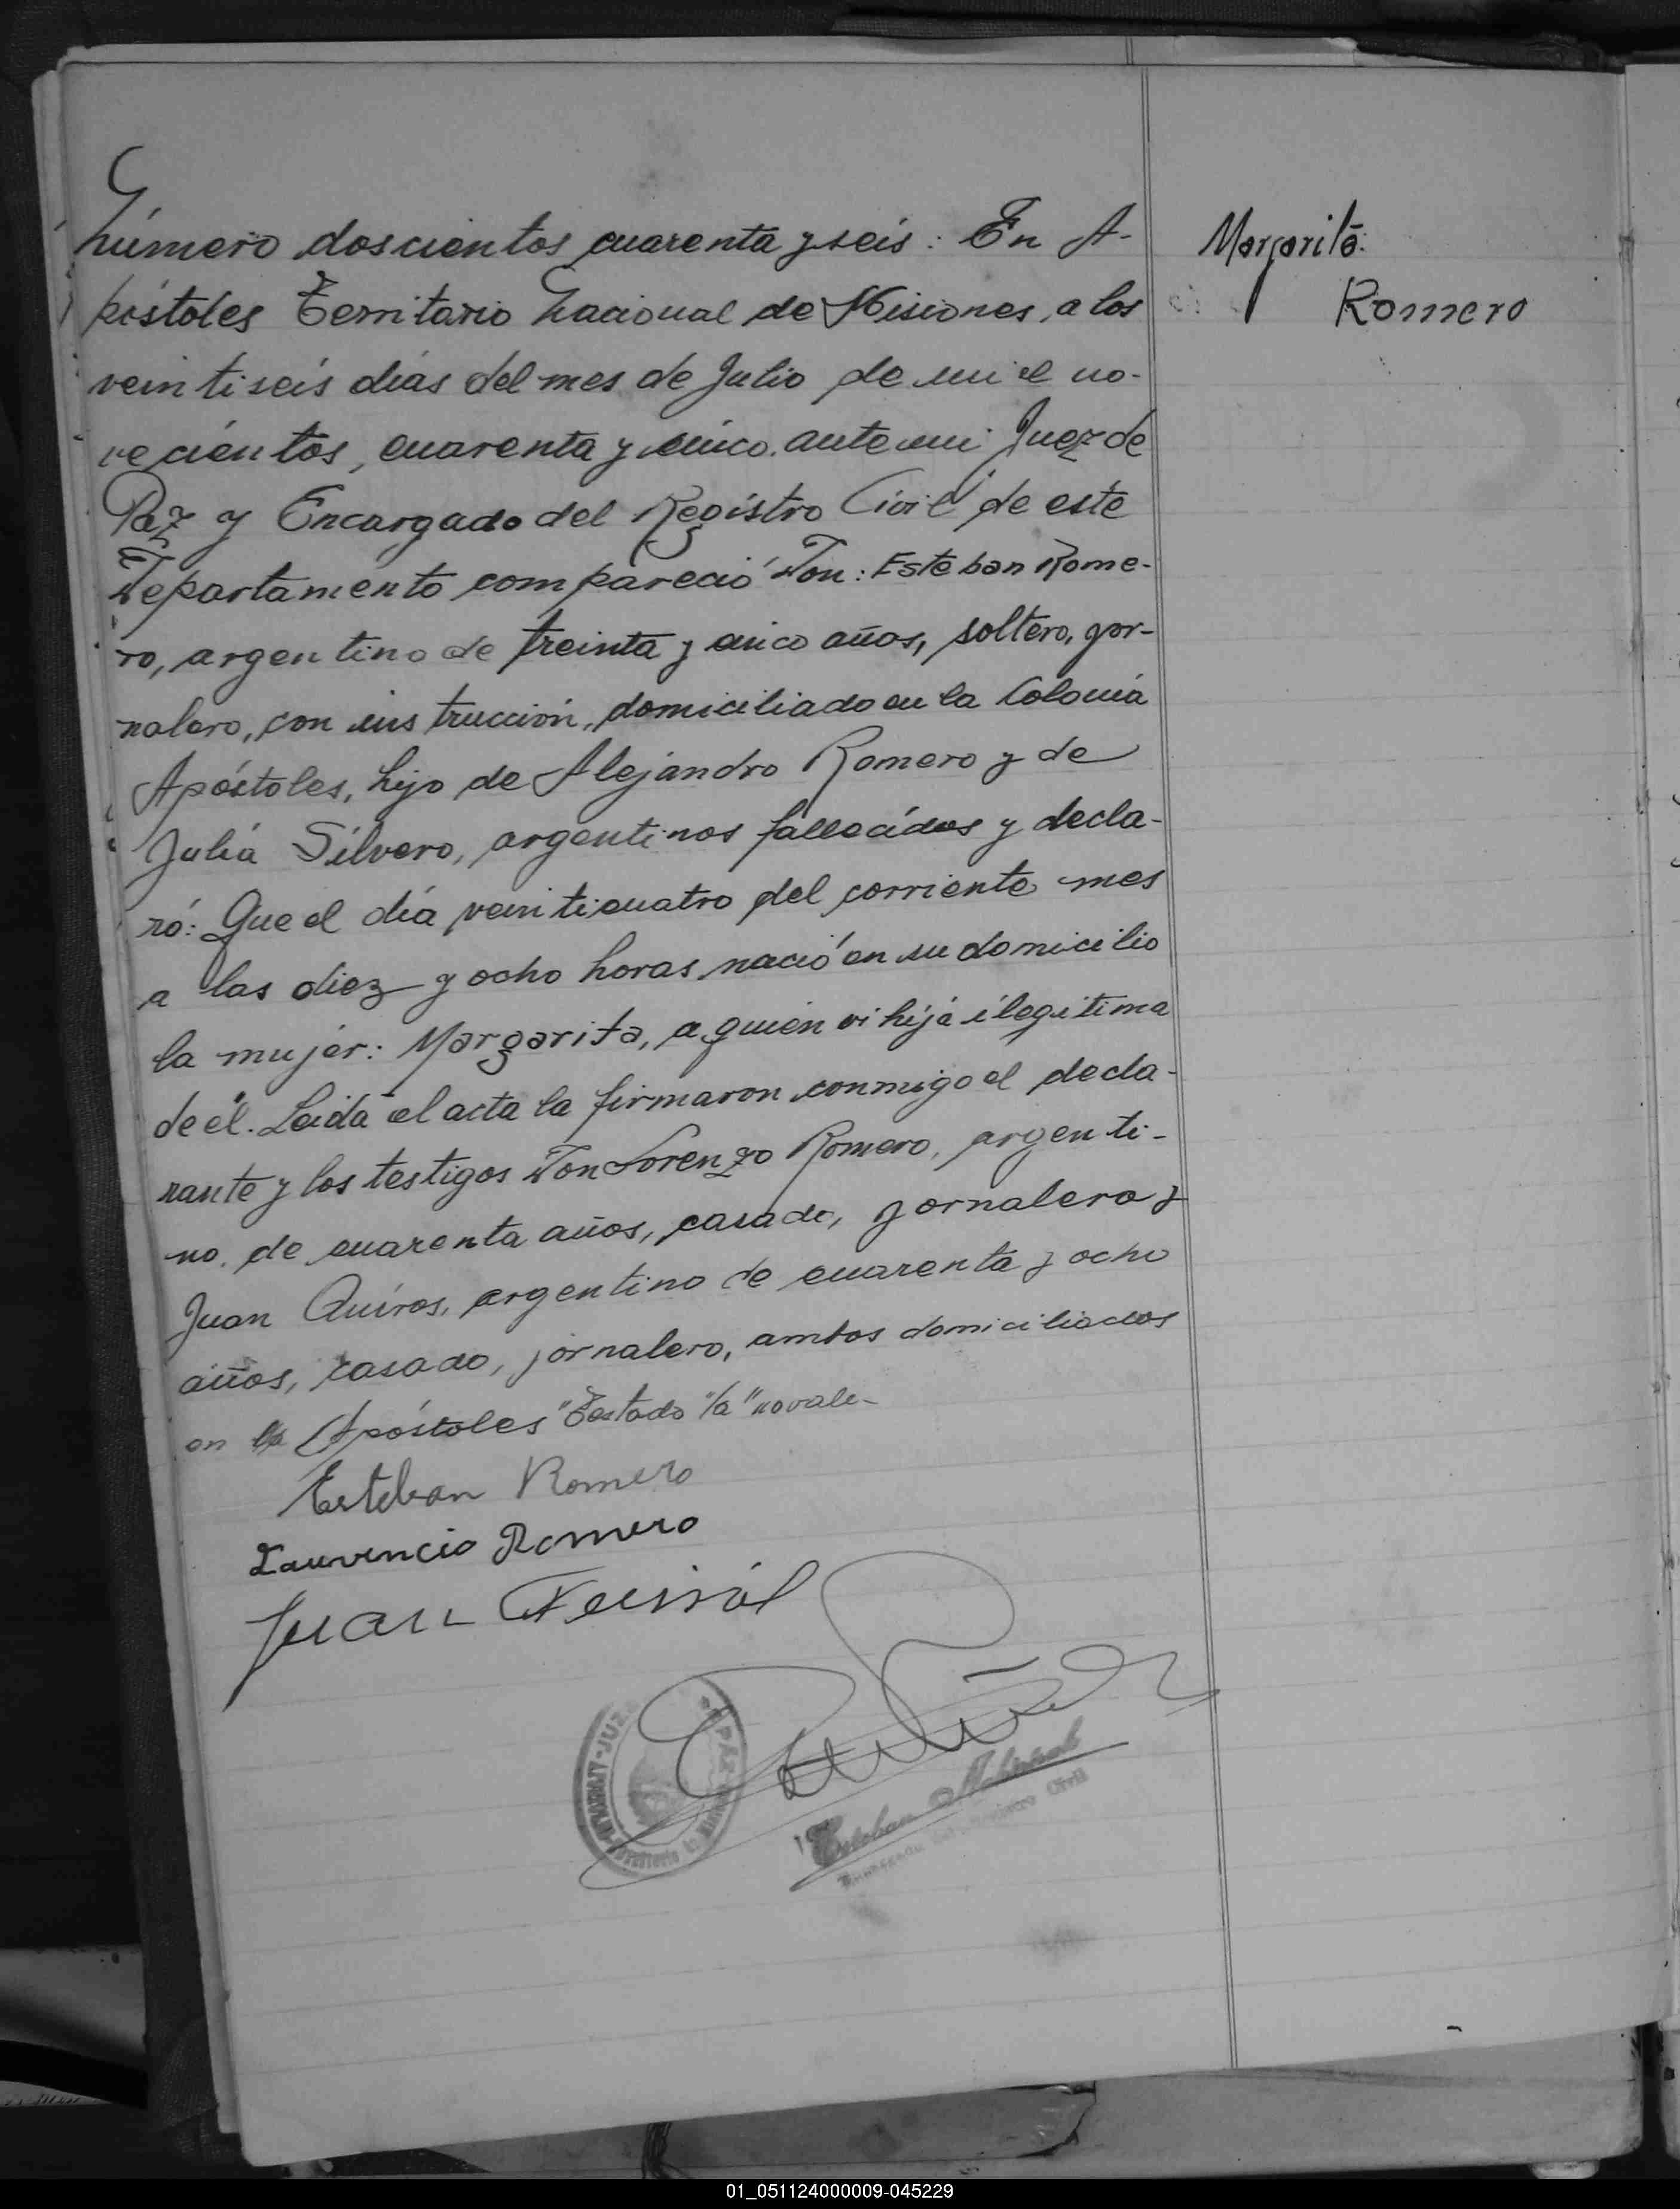 Número doscientos cuarenta y seis: En A-
póstoles Territorio Nacional de Misiones, a los
veintiseis días del mes de Julio de mil no-
vecientos, cuarenta y cinco. ante mi Juez de
Paz y Encargado del Registro Civil de este
Departamento compareció Don: Esteban Rome-
ro, argentino de treinta y cinco años, soltero, jor-
nalero, con instrucción, domiciliado en la Colonia
Apóstoles, hijo de Alejandro Romero y de
Julia Silvero, argentinos fallecidos y decla-
ró: Que el día veinticuatro del corriente mes
a las diez y ocho horas nació en su domicilio
la mujer: Margarita, a quien vi hija ilegitima
de él. Leida el acta la firmaron conmigo el decla-
rante y los testigos Don Lorenzo Romero, argenti-
no. de cuarenta años, casado, jornalero y
Juan Quiros, argentino de cuarenta y ocho
años, casado, jornalero, ambos domiciliados
en la Apóstoles "Testado "la" no vale-
Esteban Romero
Laurencio Romero
Juan
Esteban
Civil
Margarita
Romero
01_051124000009-045229